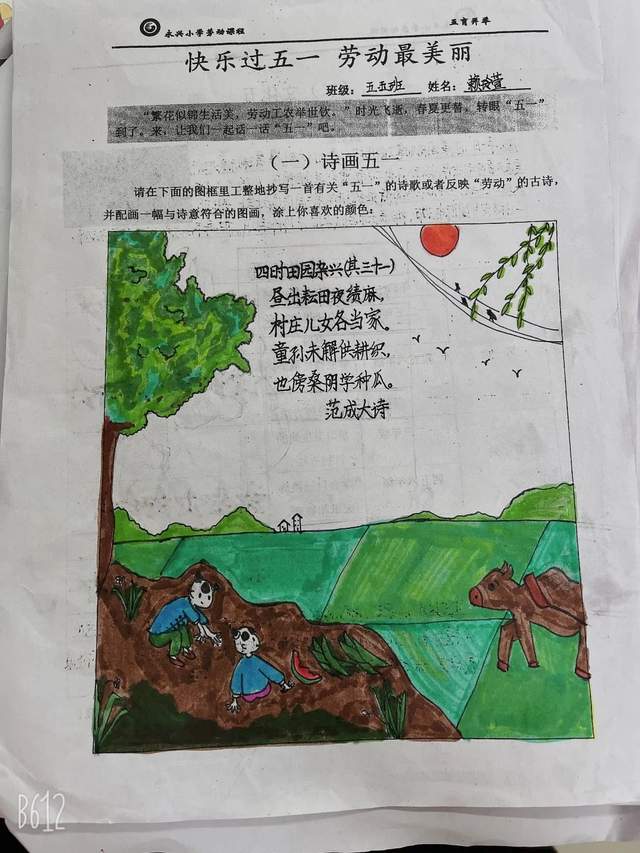 永兴小学劳动课程
五育并举
快乐过五一 劳动最美丽
班级：五五班 姓名：赖玲萱
“繁花似锦生活美，劳动工农举世钦。”时光飞逝，春夏更替，转眼“五一”
到了。来，让我们一起话一话“五一”吧。
（一）诗画五一
请在下面的图框里工整地抄写一首有关“五一”的诗歌或者反映“劳动”的古诗，
并配画一幅与诗意符合的图画，涂上你喜欢的颜色：
四时田园杂兴(其三十一)
昼出耘田夜绩麻，
村庄儿女各当家。
童孙未解供耕织，
也傍桑阴学种瓜。
范成大诗
B612